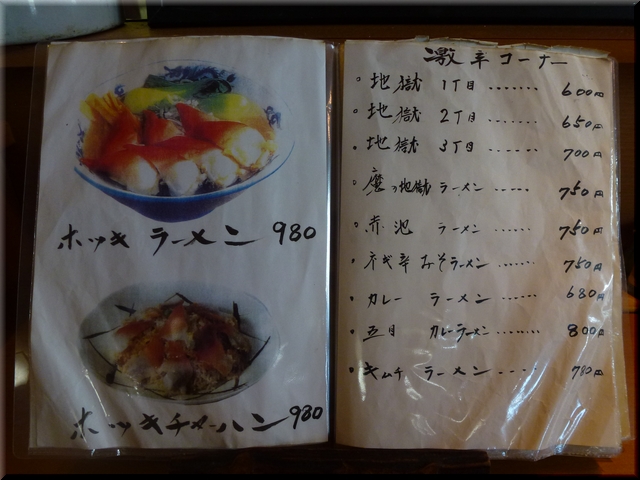 ホッキ ラーメン 980
ホッキチャーハン 980
激辛コーナー
・地獄 1丁目 ....... 600円
・地獄 2丁目 ....... 650円
・地獄 3丁目 ....... 700円
・魔の地獄 ラーメン ..... 750円
・赤池 ラーメン ...... 750円
・ネギ辛みそラーメン ...... 750円
・カレー ラーメン ...... 680円
・五目 カレーラーメン ...... 800円
・キムチ ラーメン .... 780円